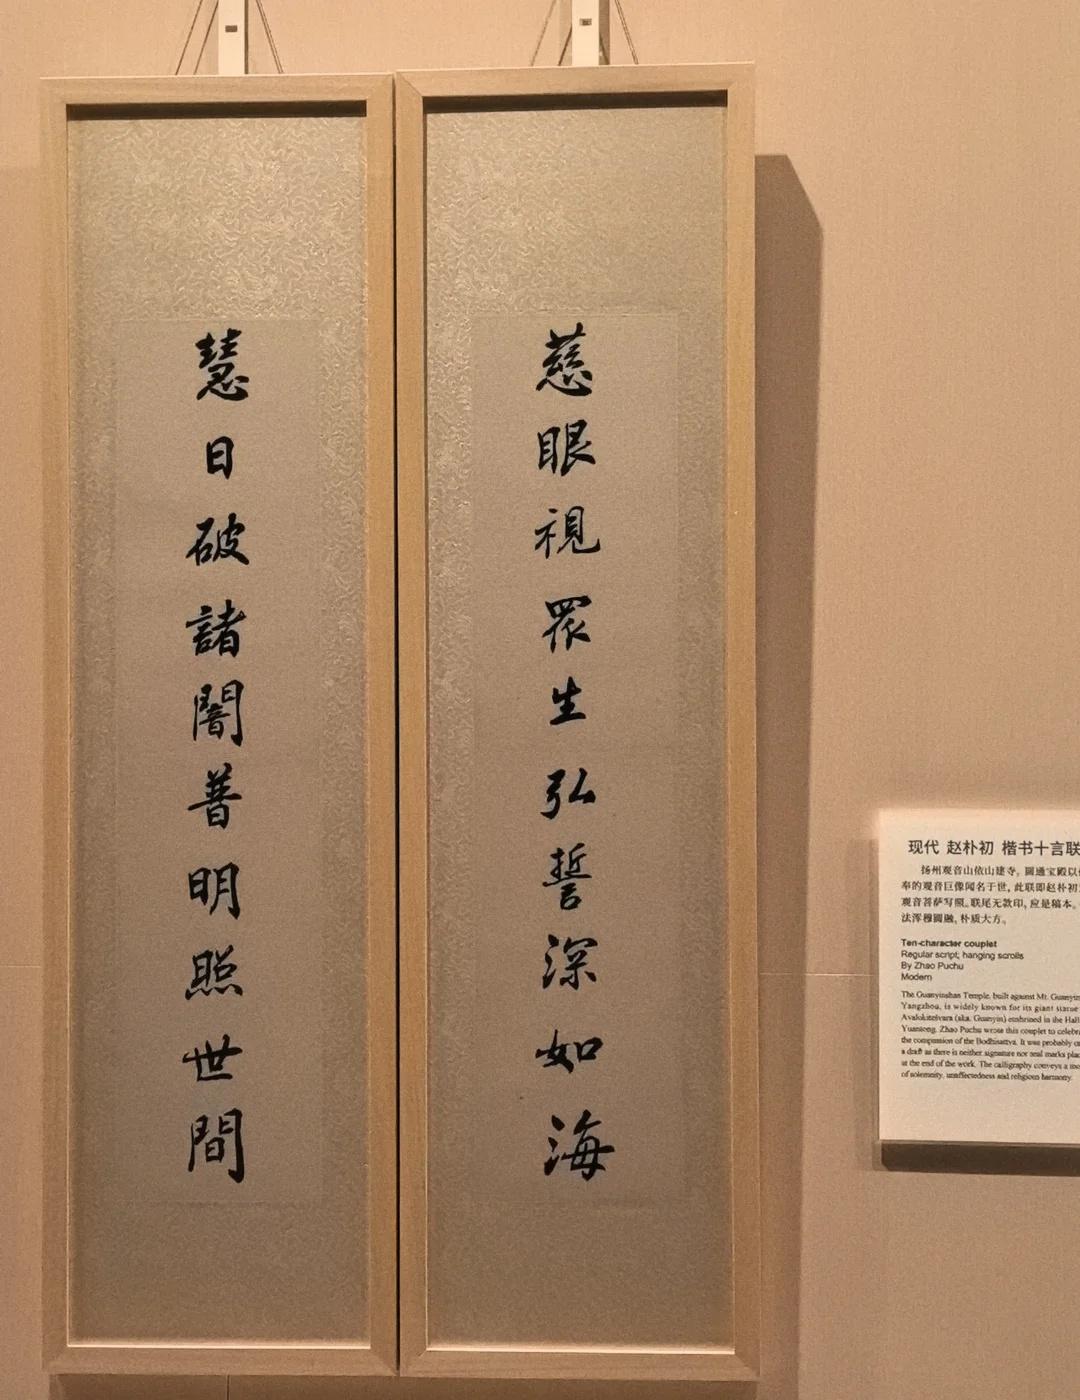 慈眼視眾生弘誓深如海
慧日破諸闇普明照世間
现代 赵朴初 楷书十言联
扬州观音山依山建寺。圆通宝殿以
奉的观音巨像闻名于世，此联即赵朴初
观音菩萨写照。联尾无款印，应是稿本。
法浑穆圆融，朴质大方。
Ten-character couplet
Regular script; hanging scrolls
By Zhao Puchu
Modern
The Guanyinshan Temple, built against Mt. Guanyin
Yangzhou, is widely known for its giant statue
Avalokitelvara (aka. Guanyin) enshrined in the Hall
Yuantong. Zhao Puchu wrote this couplet to celebra
the compassion of the Bodhisattva. It was probably
a draft as there is neither signature nor seal marks plac
at the end of the work. The calligraphy conveys a
of solemnity, unaffectedness and religious harmony.